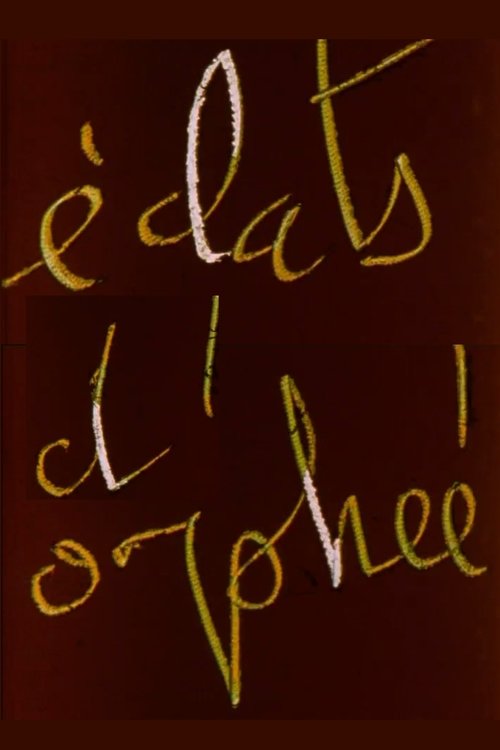 éclats
d'
orphée